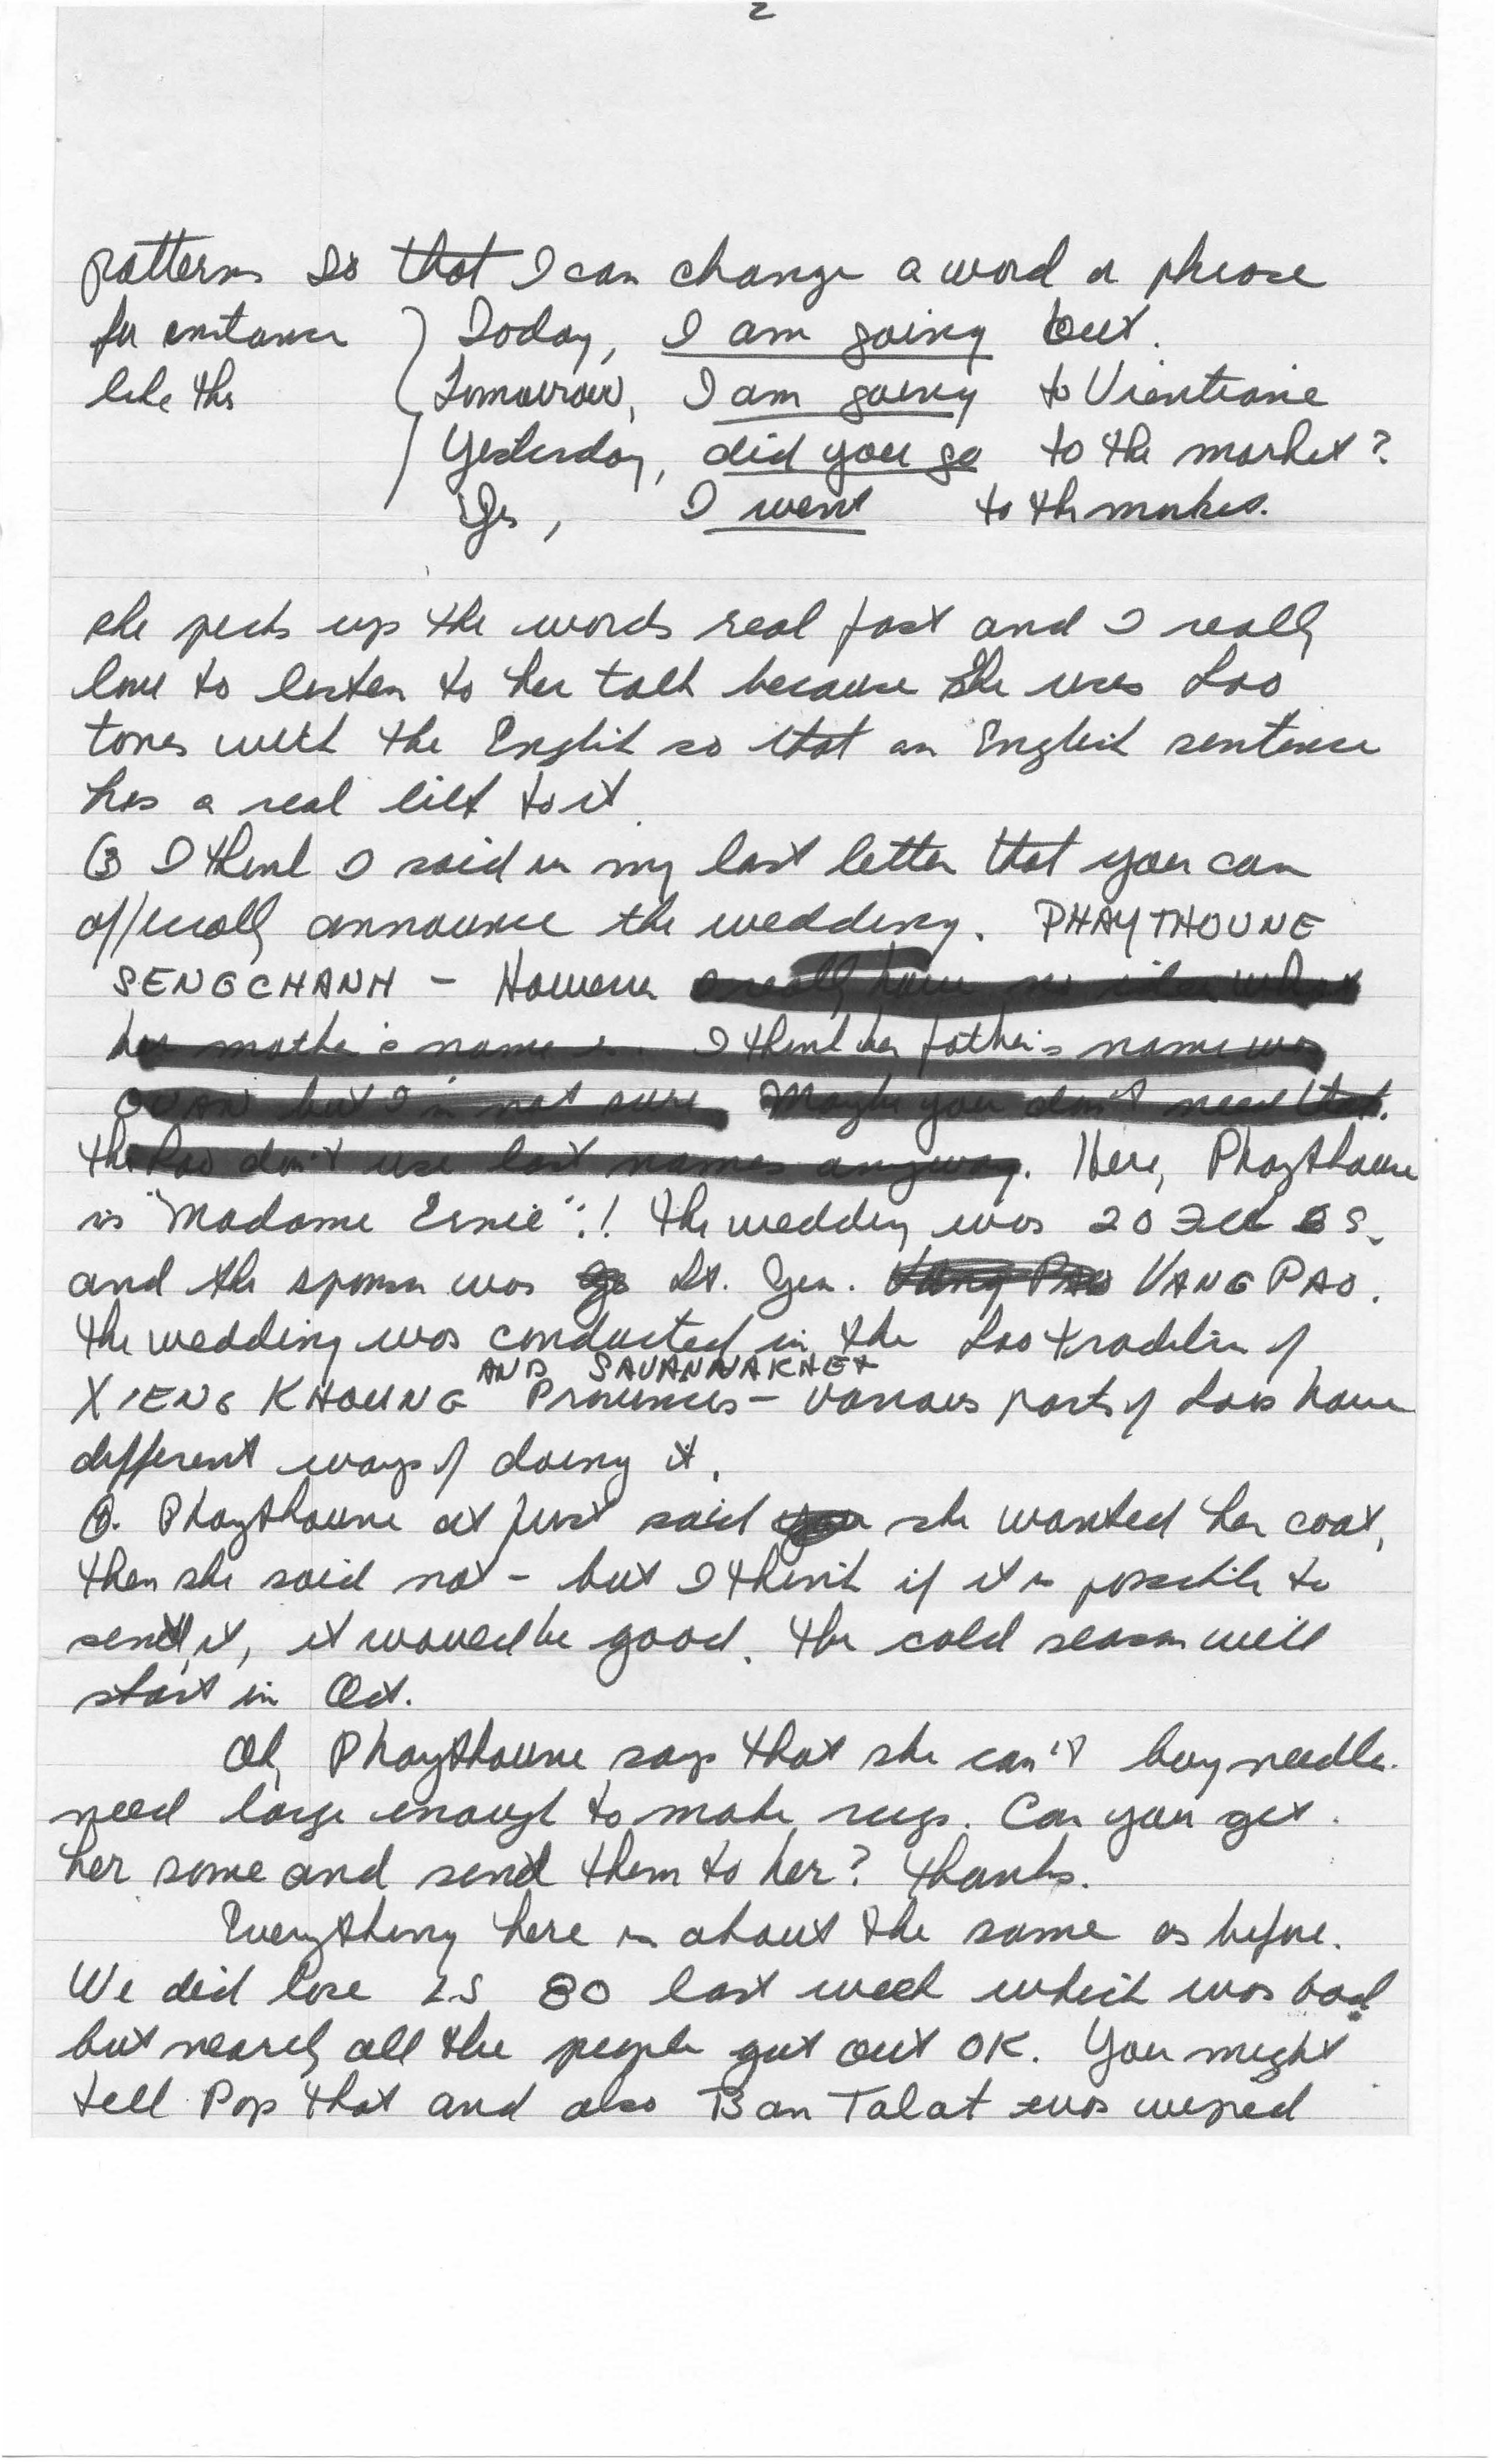 2
patterns so that I can change a word or phrase
for instance Today, I am going out.
like this Tomorrow, I am going to Vientiane
Yesterday, did you go to the market?
Yes, I went to the market.
she picks up the words real fast and I really
love to listen to her talk because she uses Lao
tones with the English so that an English sentence
has a real lilt to it
③ I think I said in my last letter that you can
officially announce the wedding. PHAYTHOUNE
SENGCHANH - However I really have no idea what
her mother's name is. I think her father's name was
OUAN but I'm not sure. Maybe you don't need that.
the Lao don't use last names anyway. Here, Phaythoune
is "Madame Ernie"! The wedding was 20
and the sponsor was Lt. Gen. Vang Pao VANG PAO.
The wedding was conducted in the Lao tradition of
AND SAVANNAKHET
XIENG KHOUNG Provinces - various parts of Laos have
different ways of doing it.
④. Phaythoune at first said you she wanted her coat,
then she said not - but I think if it is possible to
send it, it would be good. The cold season will
start in Oct.
Oh, Phaythoune says that she can't buy needles.
need large enough to make rugs. Can you get
her some and send them to her? Thanks.
Everything here is about the same as before.
We did lose LS 80 last week which was bad
but nearly all the people got out OK. You might
tell Pop that and also Ban Talat was wiped